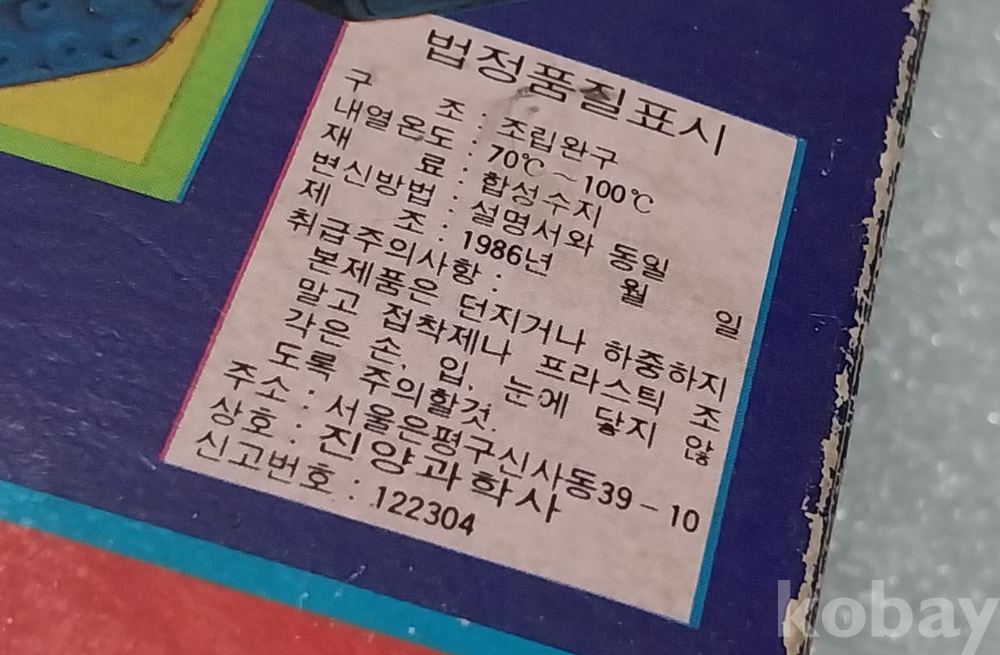 법정품질표시
구 조 : 조립완구
내열온도 : 70℃ ~100℃
재 료 : 합성수지
변신방법 : 설명서와 동일
제 조 : 1986년 월 일
취급주의사항 :
본제품은 던지거나 하중하지
말고 접착제나 프라스틱 조
각은 손, 입, 눈에 닿지 않
도록 주의할것.
주소 : 서울은평구신사동39-10
상호 : 진양과학사
신고번호 : 122304
kobay